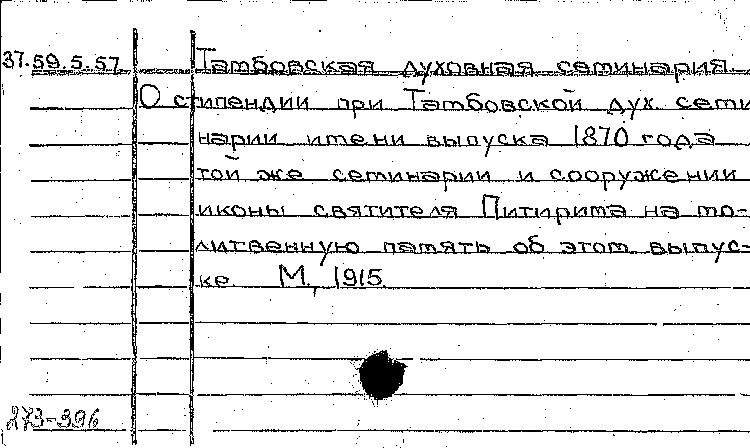 37.59.5.57 Тамбовская духовная семинария.
О стипендии при Тамбовской дух. семи
нарии имени выпуска 1870 года
той же семинарии и сооружении
иконы святителя Питирима на мо-
литвенную память об этом выпус-
ке. М., 1915.
273-396